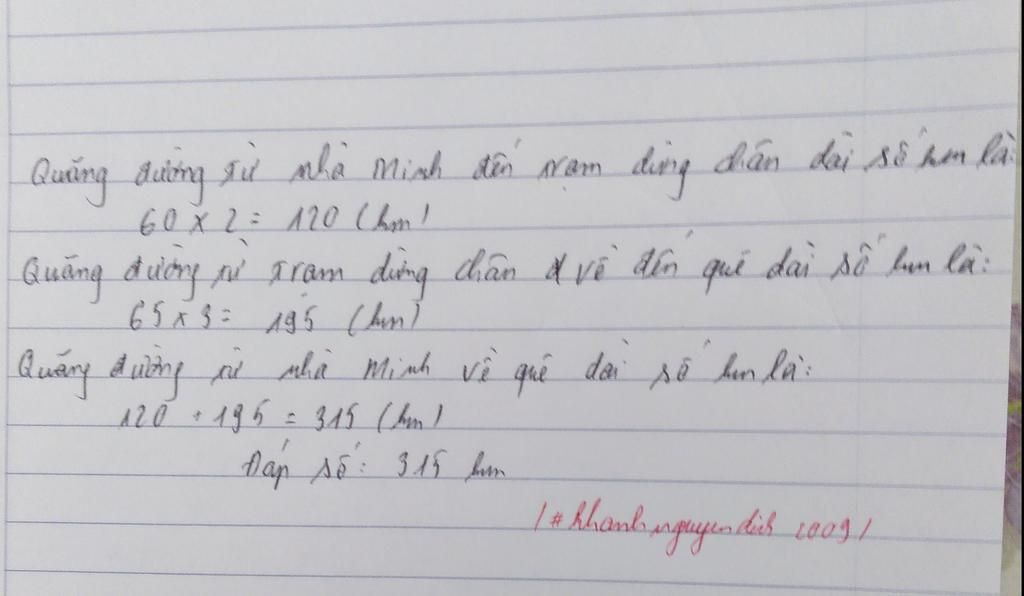 Quãng đường từ nhà Minh đến trạm dừng chân dài số km là:
60 x 2 = 120 (km)
Quãng đường từ trạm dừng chân về đến quê dài số km là:
65 x 3 = 195 (km)
Quãng đường từ nhà Minh về quê dài số km là:
120 + 195 = 315 (km)
Đáp số: 315 km
/ # khanhnguyendich 2009 /